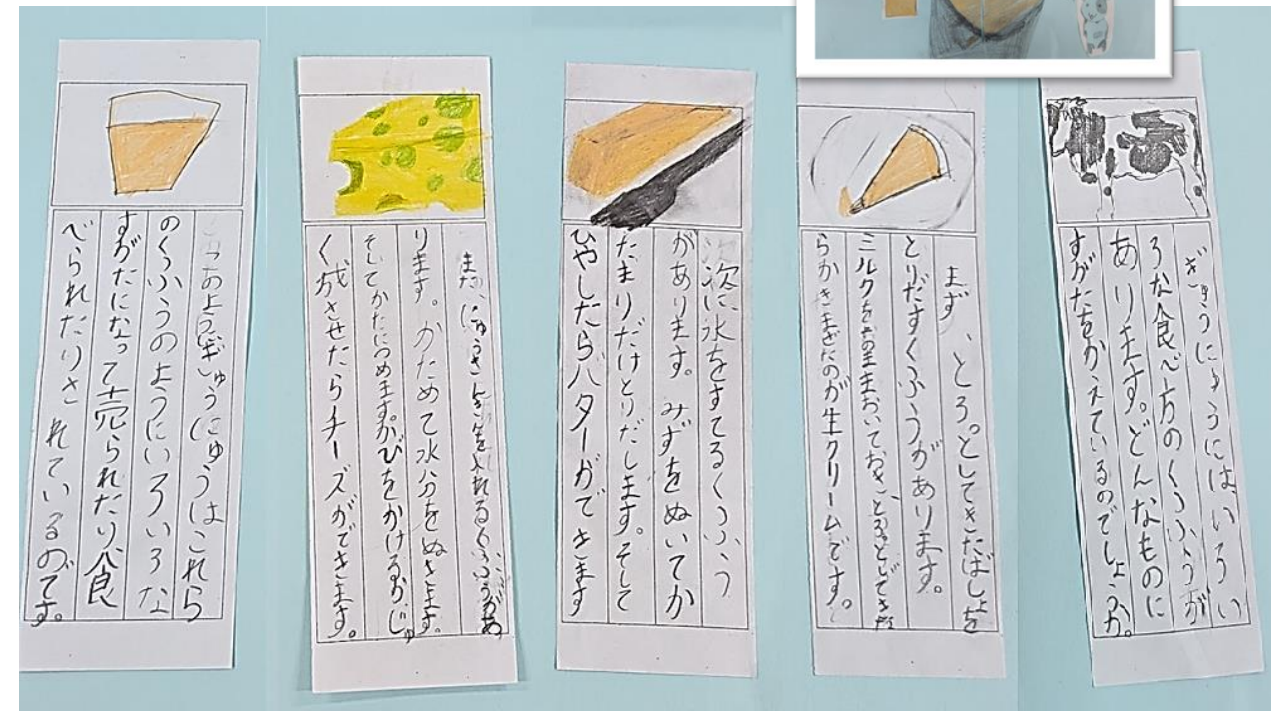 ぎゅうにゅうには、いろい
ろな食べ方のくふうが
あります。どんなものに
すがたをかえているのでしょうか。
まず、とろっとしてきたばしょを
とりだすくふうがあります。
ミルクをそのままおいておき、とろっとしてきた
らかきまぜたのが生クリームです。
次に水をすてるくふう
があります。みずをぬいてか
たまりだけとりだします。そして
ひやしたらバターができます
また、にゅうさんきんを入れるくふうがあ
ります。かためて水分をぬきます。
そしてかたにつめます。かびをかける
く成させたらチーズができます。
このようにぎゅうにゅうはこれら
のくふうのようにいろいろな
すがたになって売られたり食
べられたりされているのです。